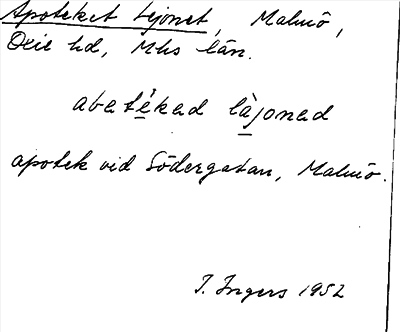 Apoteket Lejonet, Malmö,
Oxie hd, Mhs län.
abetékad làjoned
apotek vid Södergatan, Malmö.
I. Ingers 1952